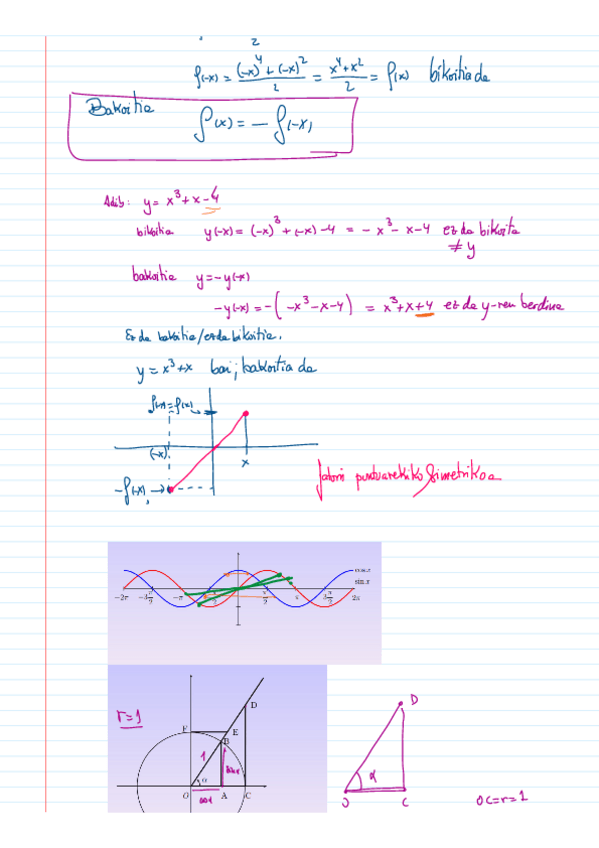 2
f(-x) = ((-x)^4 + (-x)^2)/2 = (x^4 + x^2)/2 = f(x) bikoitia da
Bakoitia f(x) = - f(-x)
Adib: y = x^3 + x - 4
bikoitia y(-x) = (-x)^3 + (-x) - 4 = - x^3 - x - 4 ez da bikoitia
≠ y
bakoitia y = - y(-x)
- y(-x) = - (-x^3 - x - 4) = x^3 + x + 4 ez da y-ren berdina
Ez da bakoitia/ez da bikoitia.
y = x^3 + x bai; bakoitia da
f(-x) = f(x)
(-x)
x
-f(-x)
Jatorri puntuarekiko simetrikoa
cos x
sin x
-2π -3π/2 -π π/2 π 3π/2 2π
r=1
D
F E
B
1
α
O A C
D
α
O C
OC=r=1